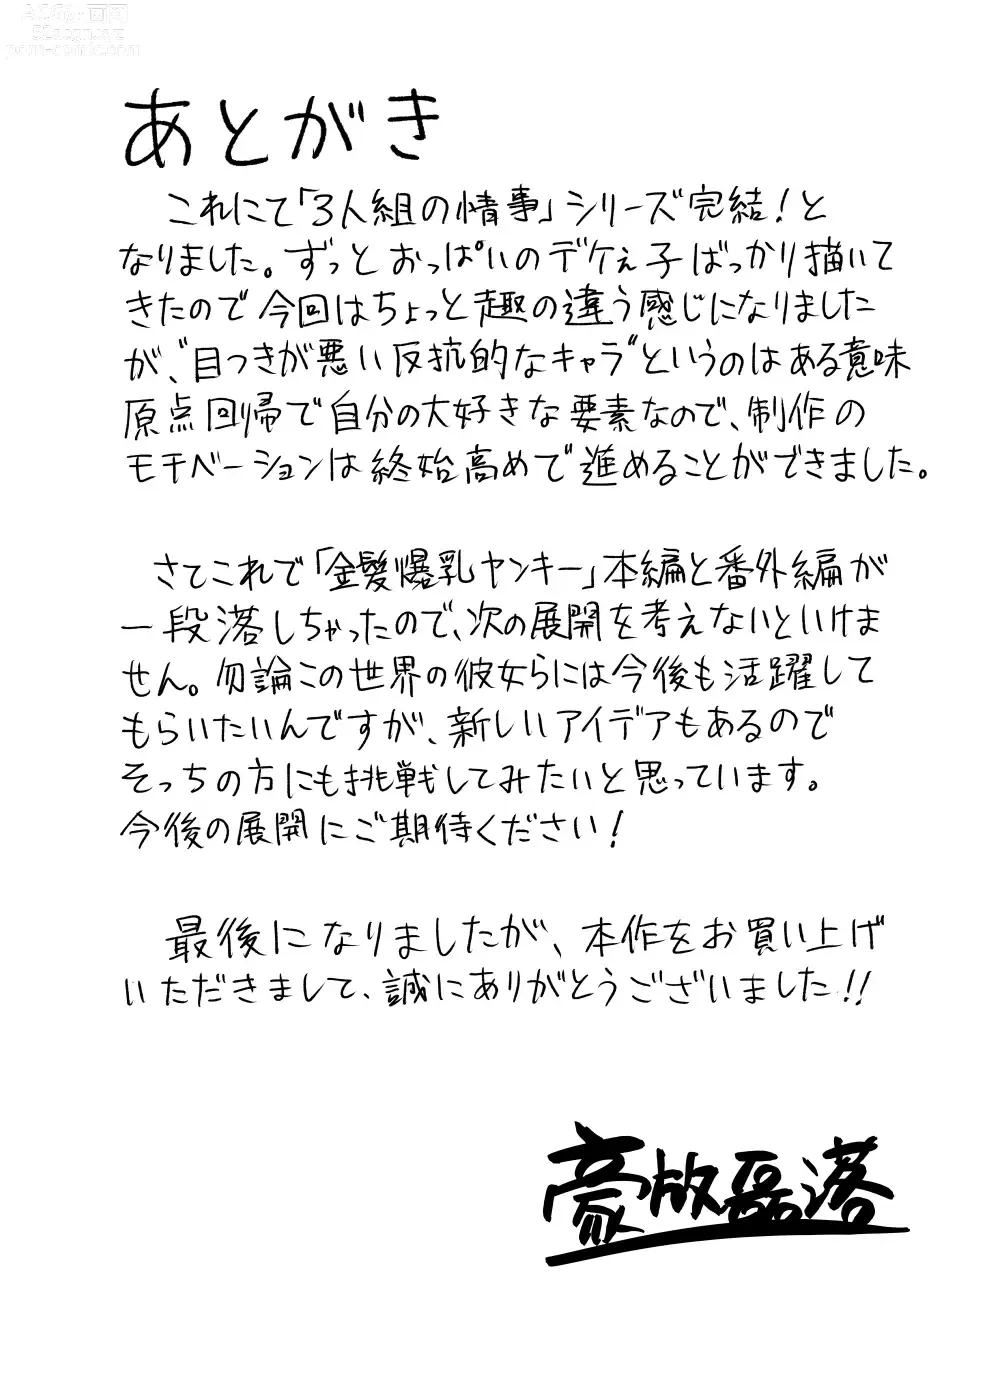 ACG少女画回
52acgn.xyz
porn-comic.com
あとがき
これにて「3人組の情事」シリーズ完結!と
なりました。ずっとおっぱいのデケぇ子ばっかり描いて
きたので今回はちょっと趣の違う感じになりました
が、"目つきが悪い反抗的なキャラ"というのはある意味
原点回帰で自分の大好きな要素なので、制作の
モチベーションは終始高めで進めることができました。
さてこれで「金髪爆乳ヤンキー」本編と番外編が
一段落しちゃったので、次の展開を考えないといけま
せん。勿論この世界の彼女らには今後も活躍して
もらいたいんですが、新しいアイデアもあるので
そっちの方にも挑戦してみたいと思っています。
今後の展開にご期待ください!
最後になりましたが、本作をお買い上げ
いただきまして、誠にありがとうございました!!
豪放磊落